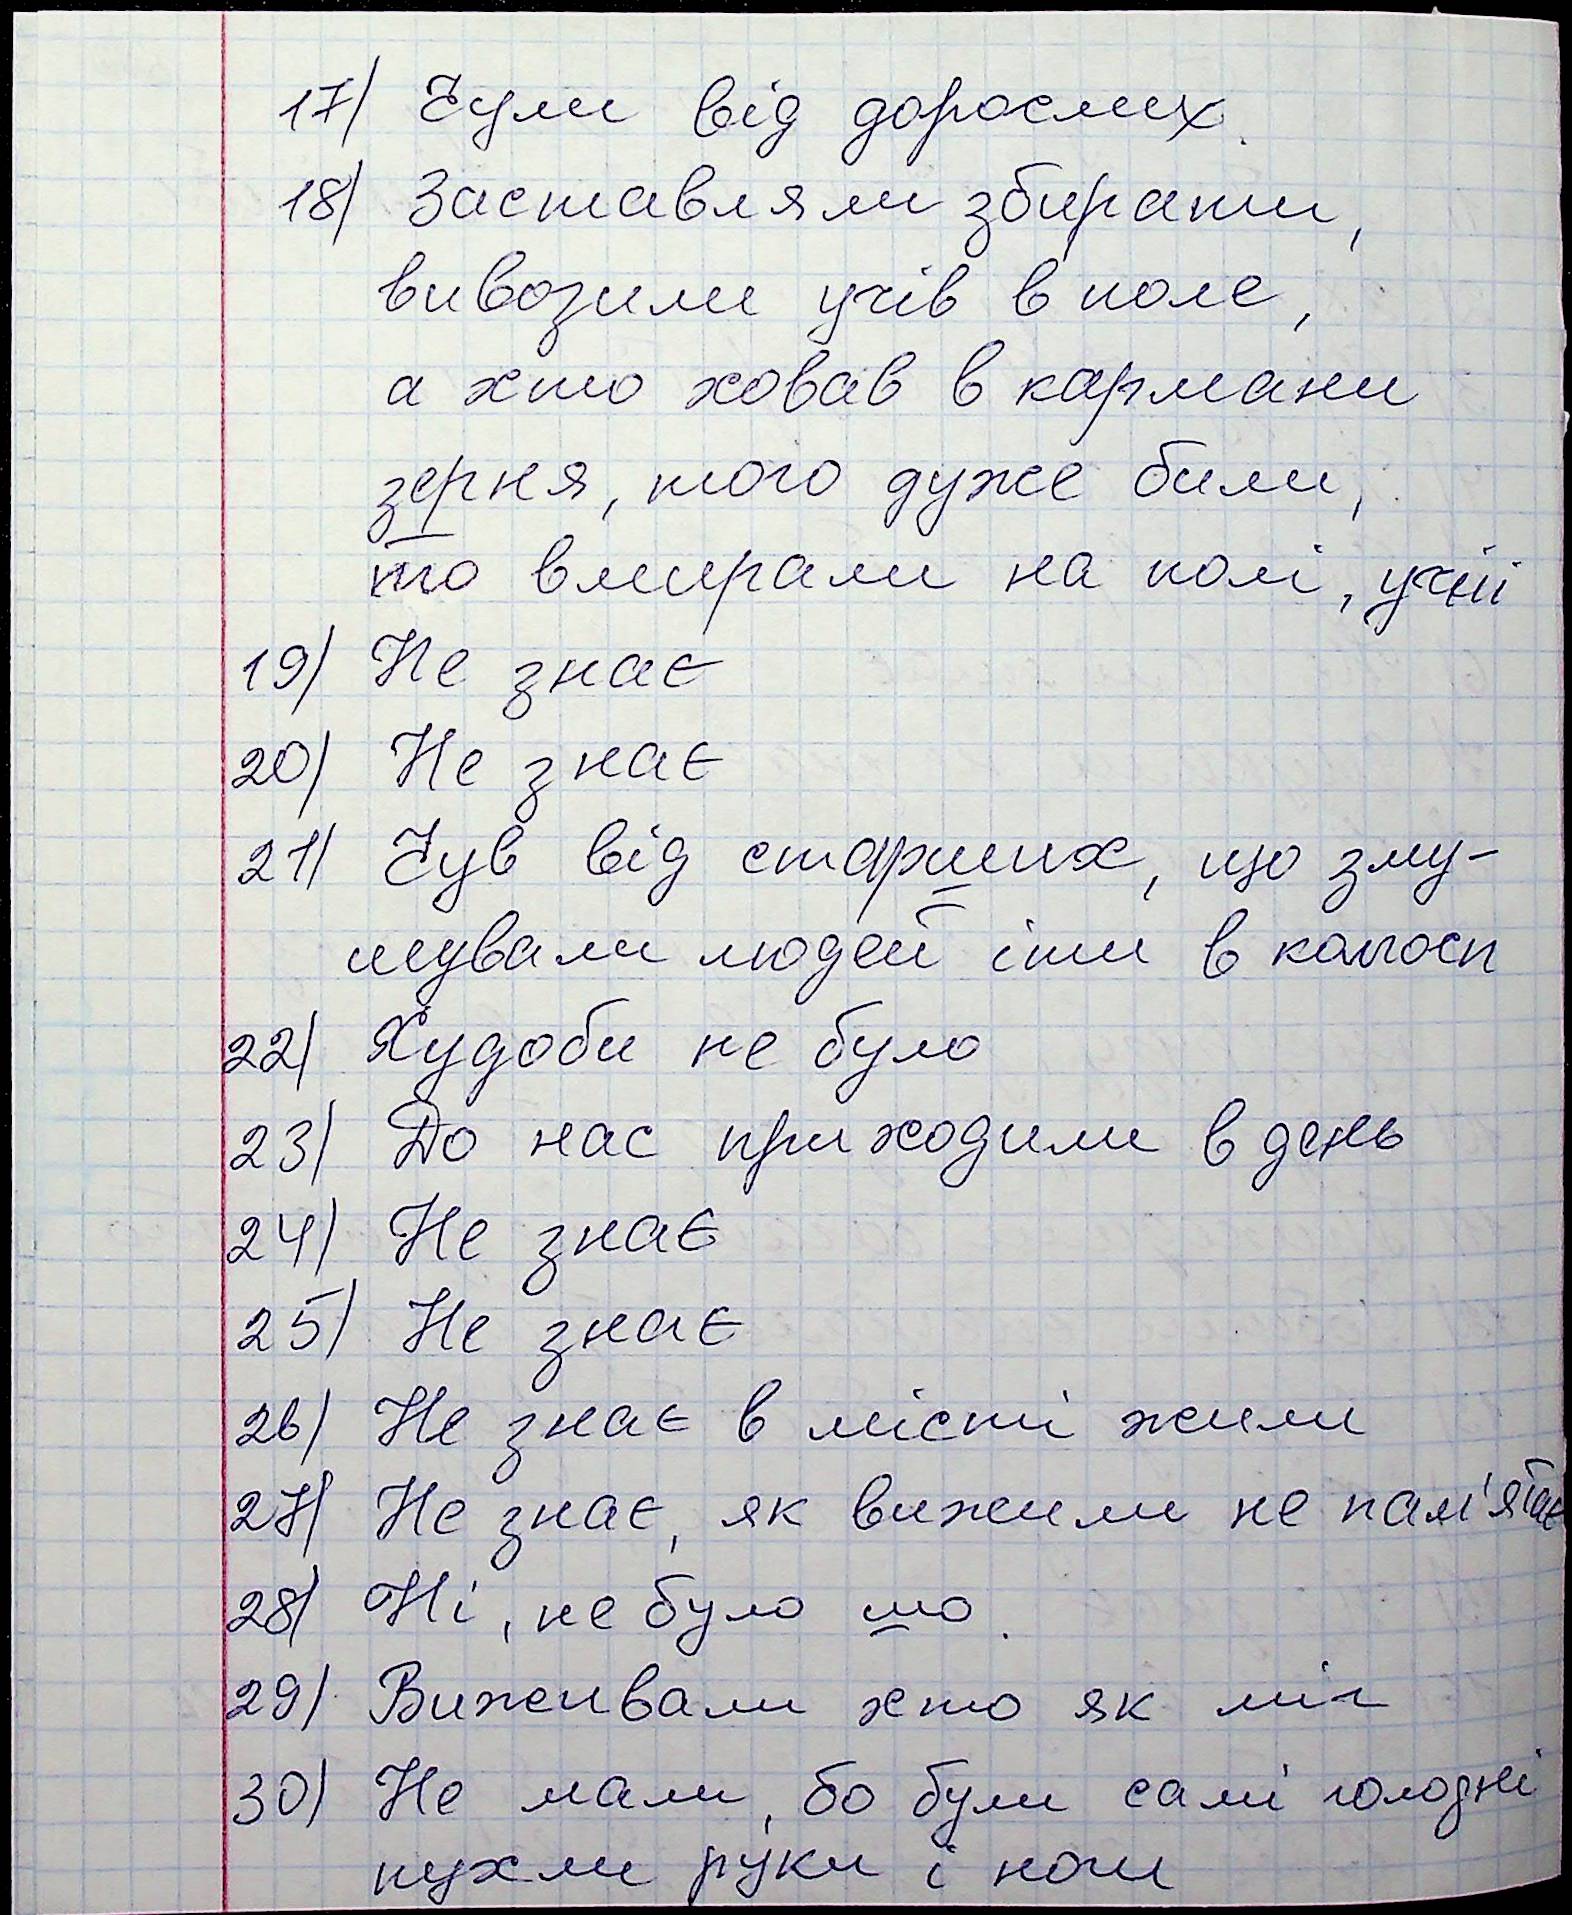 17) Чули від дорослих.
18) Заставляли збирати,
вивозили учів в поле,
а хто ховав в кармани
зерня, того дуже били,
то вмирали на полі, учні
19) Не знає
20) Не знає
21) Чув від старших, що зму-
шували людей іти в колгосп
22) Худоби не було
23) До нас приходили в день
24) Не знає
25) Не знає
26) Не знає в місті жили
27) Не знає, як вижили не пам'ятає
28) Ні, не було що.
29) Виживали хто як міг
30) Не мали, бо були самі голодні
пухли руки і ноги